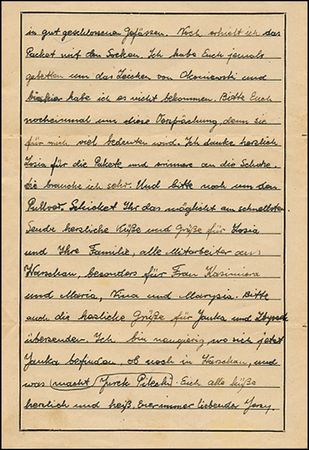 in gut geschlossenen Gefässen. Noch erhielt ich das
Packet mit den Socken. Ich habe Euch jemals
gebetten um das Zeichen von Skoniewski und
bisher habe ich es nicht bekommen. Bitte Euch
nocheinmal um diese Vorsprechung, denn sie
für mich viel bedeuten wird. Ich danke herzlich
Zosia für die Pakete und erinnere an die Schuhe,
die brauche ich sehr. Und bitte noch um den
Pullover. Schicket Ihr das möglichst am schnellsten.
Sende herzliche Küße und Grüße für Zosia
und Ihre Familie, alle Mitarbeiter aus
Warschau, besonders für Frau Kazimiera
und Maria, Nina und Marysia. Bitte
auch die herzliche Grüße für Janka und Zbyszek
übersenden. Ich bin neugierig wo sich jetzt
Janka befinden, ob noch in Warschau, und
was macht Jurek Piłecki. Euch alle küße
herzlich und heiß. Euer immer liebender Jerzy.